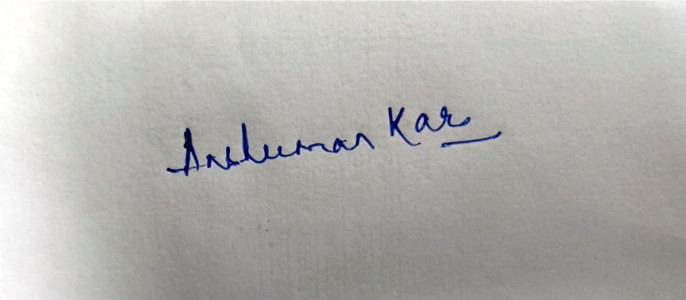 Ansuman Kar